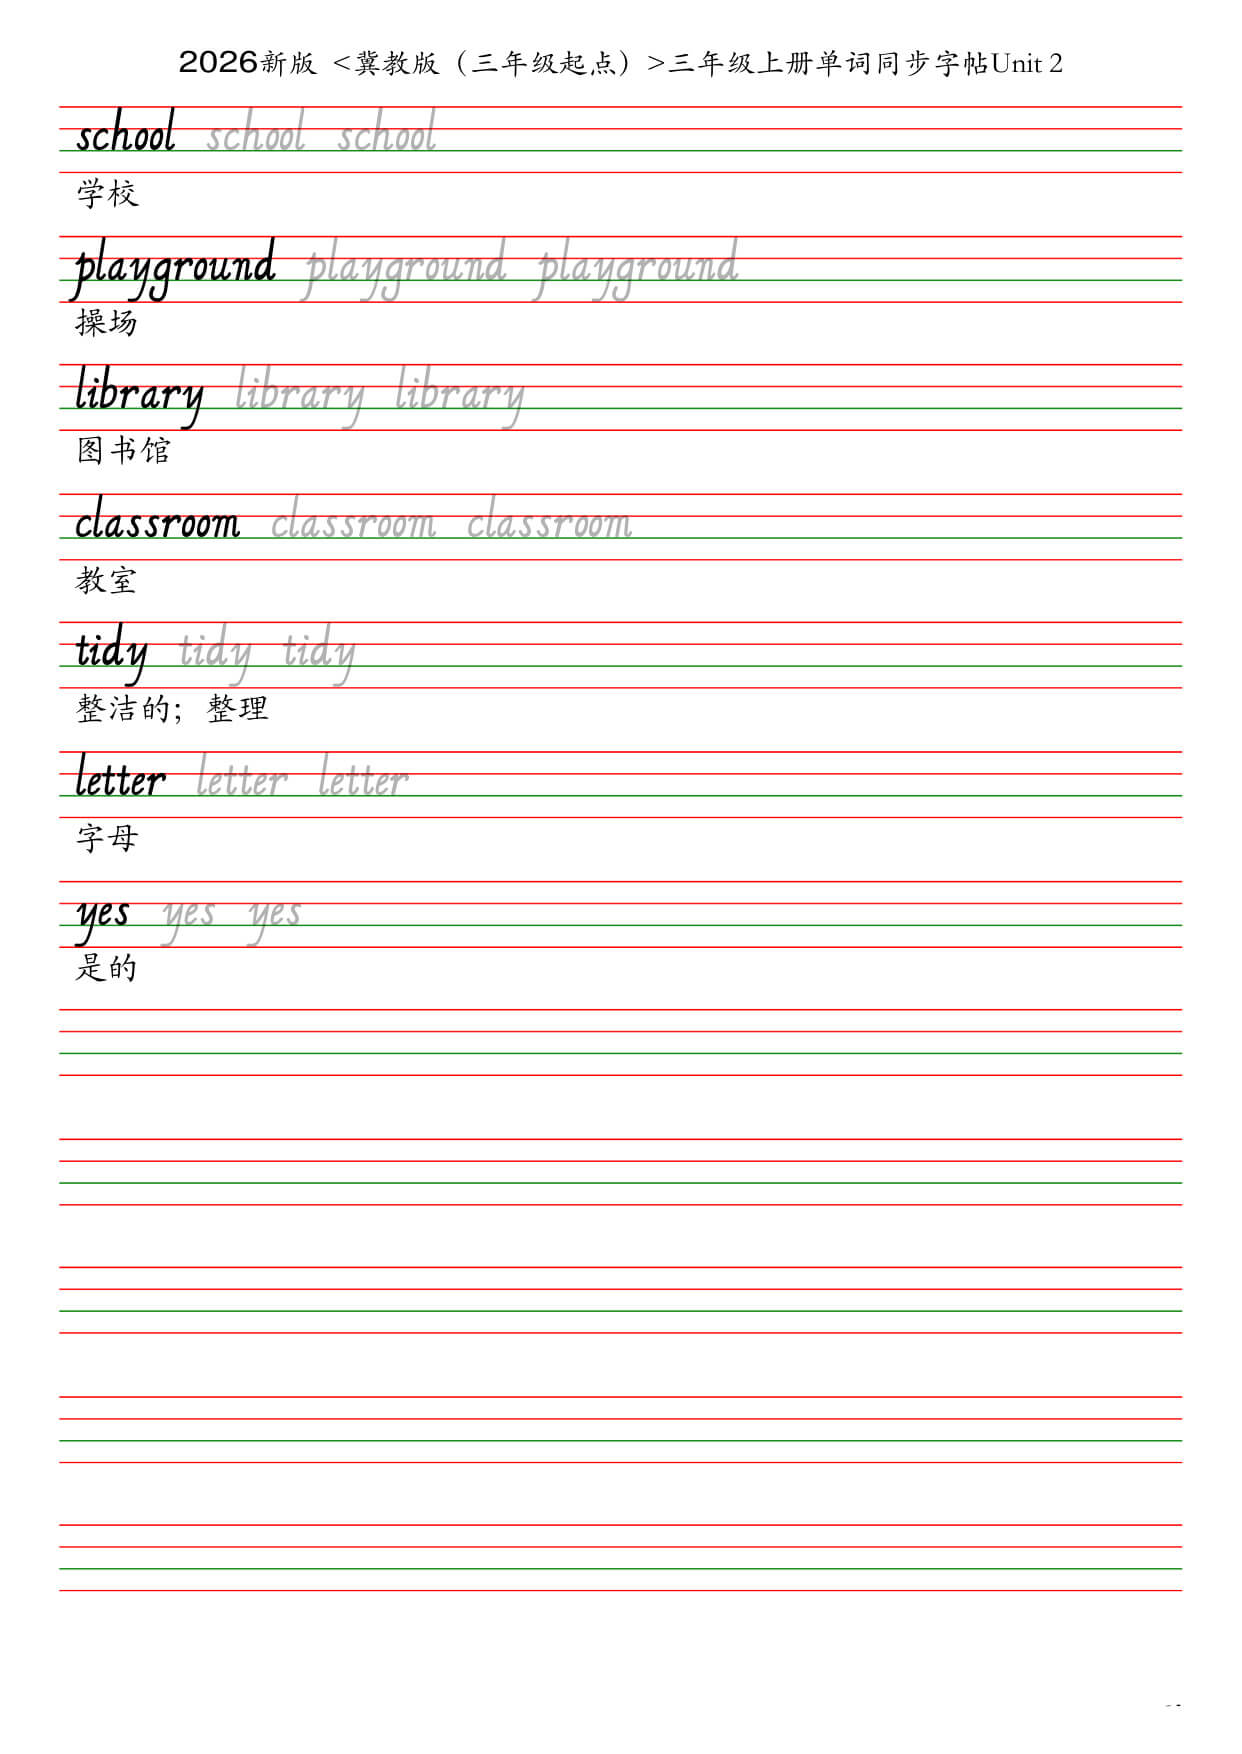 2026新版 <冀教版（三年级起点）>三年级上册单词同步字帖Unit 2
school school school
学校
playground playground playground
操场
library library library
图书馆
classroom classroom classroom
教室
tidy tidy tidy
整洁的；整理
letter letter letter
字母
yes yes yes
是的